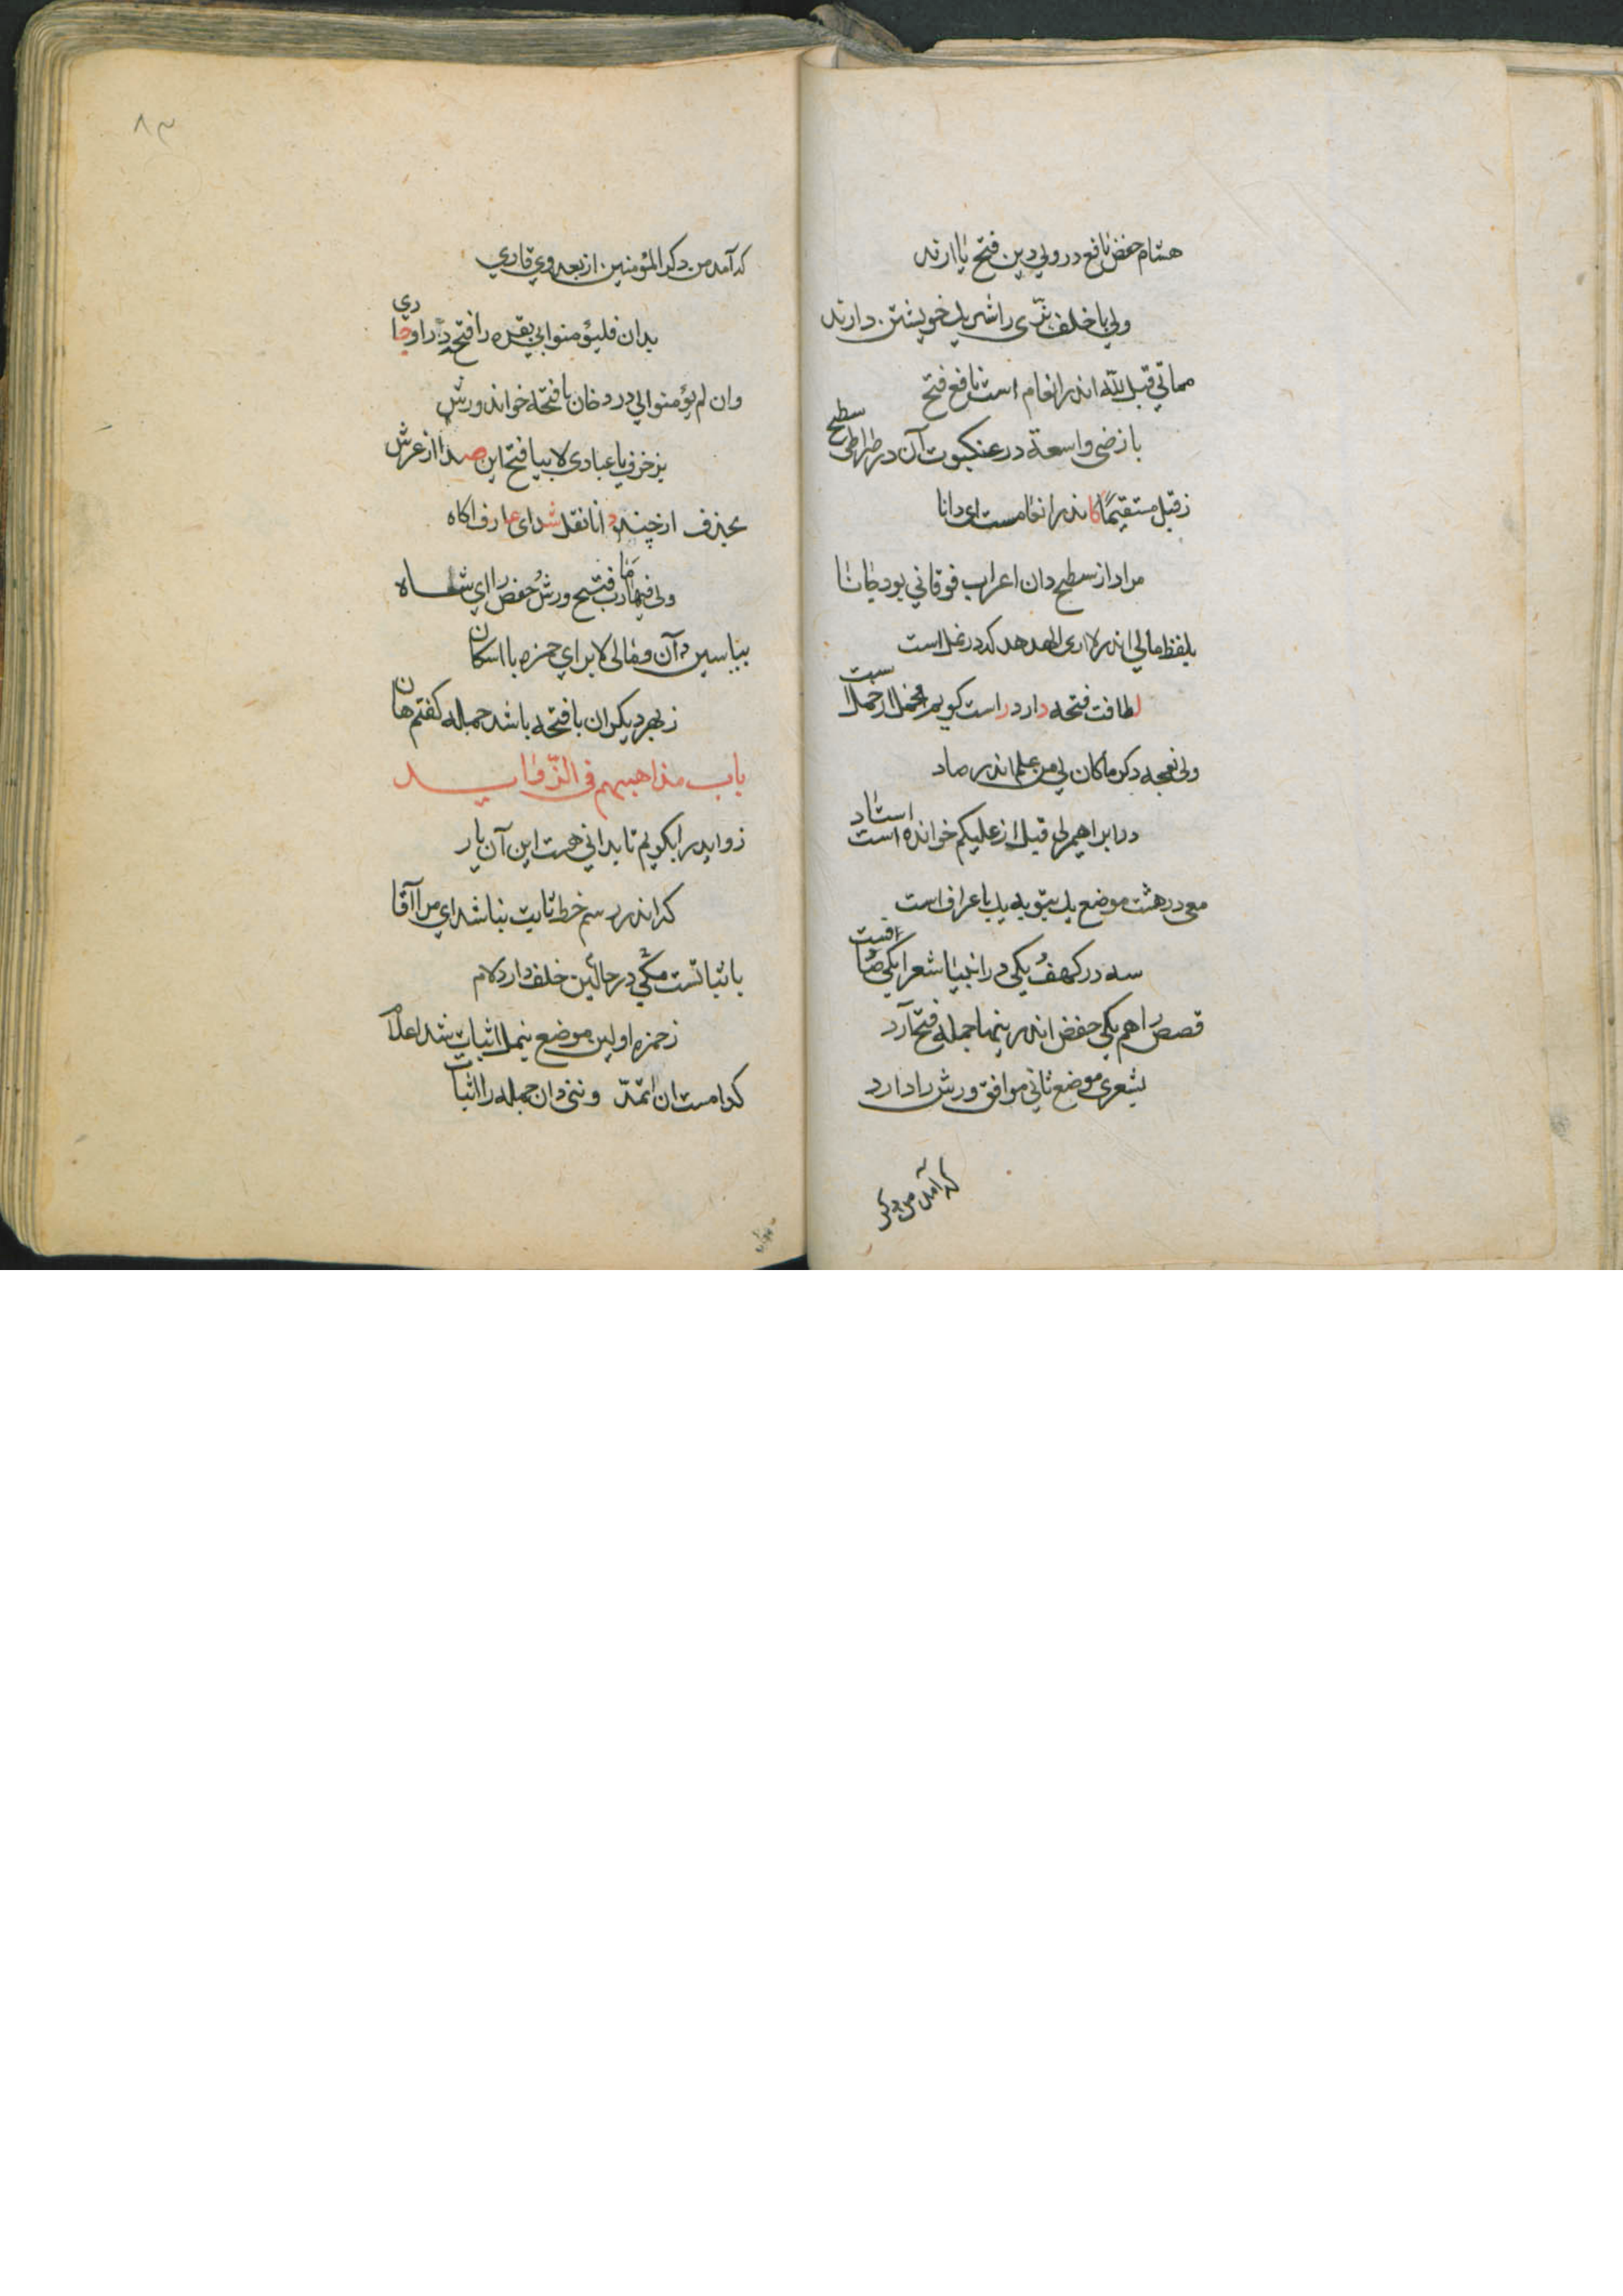 هشام حفص نافع در ولی دین فتح یا ارند
ولی با خلف بزی را شریک خویشتن دارند
مماتی قبل لله اندر انعام است نافع فتح
بارضی واسعة در عنکبوت آن در صراطی سطح
ز قبل مستقیما کاندر انعامست ای دانا
مراد از سطح دان اعراب فوقانی بود جانا
بلفظ مالی اندر لا اری الهدهد که در نمل است
لطافت فتحه دارد راست کویم
ولی نعجه دکر ما کان لی من علم اندر صاد
در ابراهیم لی قبل از علیکم خوانده است استاد
معی در هشت موضع یک بتوبه یک باعراف است
سه در کهف و یکی در انبیا شعرا یکی
قصص را هم یکی حفص اندر ینها جمله فتح آرد
بشعری موضع ثانی موافق ورش را دارد
که آمد من دکر
۸۳
که آمد من دکر المؤمنین از بعد وی قاری
بدان فلیؤمنوا بی بقره را فتح در او جاری
وان لم یؤمنوا لی در دخان با فتحه خواند ورش
بزخرف یا عبادی لا بیا فتح این صدا از عرش
بحذف ار چند دانا نقل شد ای عارف اکاه
ولی فیها مارب فتح ورش و حفص را ای شاه
بیاسین دان و مالی لا برای حمزه با اسکان
ز بهر دیکران با فتحه باشد جمله کفتم هان
باب مذاهبهم فی الزواید
زواید را بکویم تا بدانی هست این آن یار
که اندر رسم خط ثابت نباشد ای مرا آقا
با ثباتست مکی در حالین خلف دارد لام
ز حمزه اولین موضع بنمل اثبات شد اعلام
کدامست ان اتمدّ وننی دان جمله را اثبات